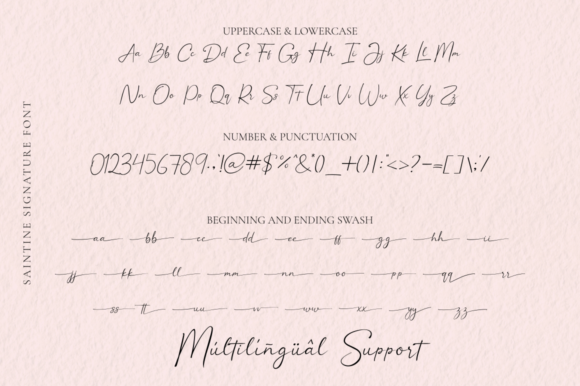 SAINTINE SIGNATURE FONT
UPPERCASE & LOWERCASE
Aa Bb Cc Dd Ee Ff Gg Hh Ii Jj Kk Ll Mm
Nn Oo Pp Qq Rr Ss Tt Uu Vv Ww Xx Yy Zz
NUMBER & PUNCTUATION
0123456789..!@#$%^&*()_+()|:"<>?-=[]\;'/
BEGINNING AND ENDING SWASH
aa bb cc dd ee ff gg hh ii
jj kk ll mm nn oo pp qq rr
ss tt uu vv ww xx yy zz
Múltílíñgüâl Support